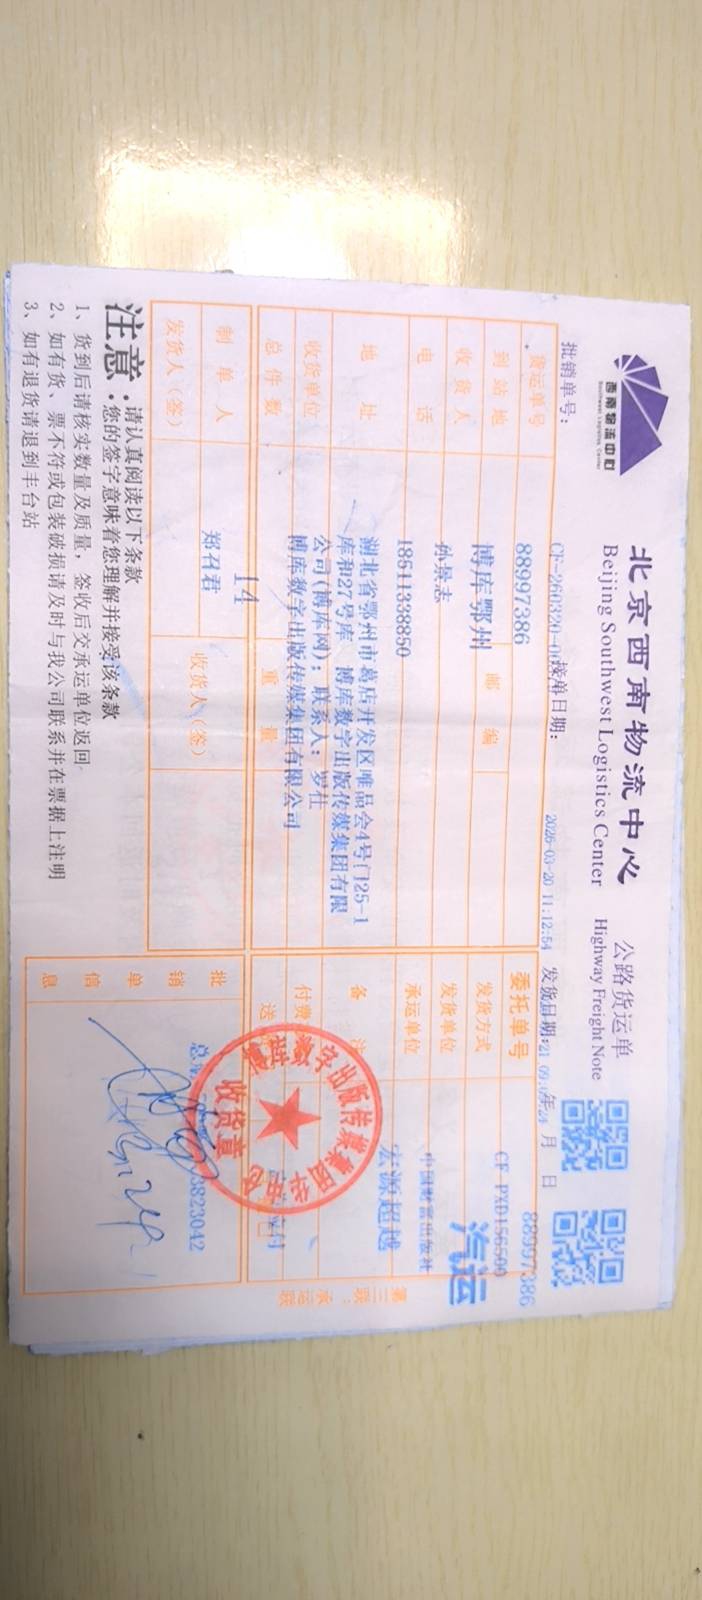 西南物流中心
Southwest Logistics Center
北京西南物流中心
Beijing Southwest Logistics Center
公路货运单
Highway Freight Note
批销单号:
接单日期:
2026-03-20 11:12:54
发货日期:
年 月 日
货运单号
88997386
委托单号
88997386
CF-PXD156500
到站地
博库鄂州
邮编
发货方式
汽运
收货人
孙景志
发货单位
中国财富出版社
电话
18511338850
承运单位
宏源超越
地址
湖北省鄂州市葛店开发区唯品会4号门25-1
库和27号库 博库数字出版传媒集团有限
公司(博库网);联系人:罗仕
备注
收货单位
博库数字出版传媒集团有限公司
付费
总件数
14
重量
送
应付
制单人
郑召君
收货人(签)
发货人(签)
批销单信息
3823042
数字出版传媒集团
收货章
第二联:承运联
注意:
请认真阅读以下条款
您的签字意味着您理解并接受该条款
1、货到后请核实数量及质量,签收后交承运单位返回
2、如有货、票不符或包装破损请及时与我公司联系并在票据上注明
3、如有退货请退到丰台站